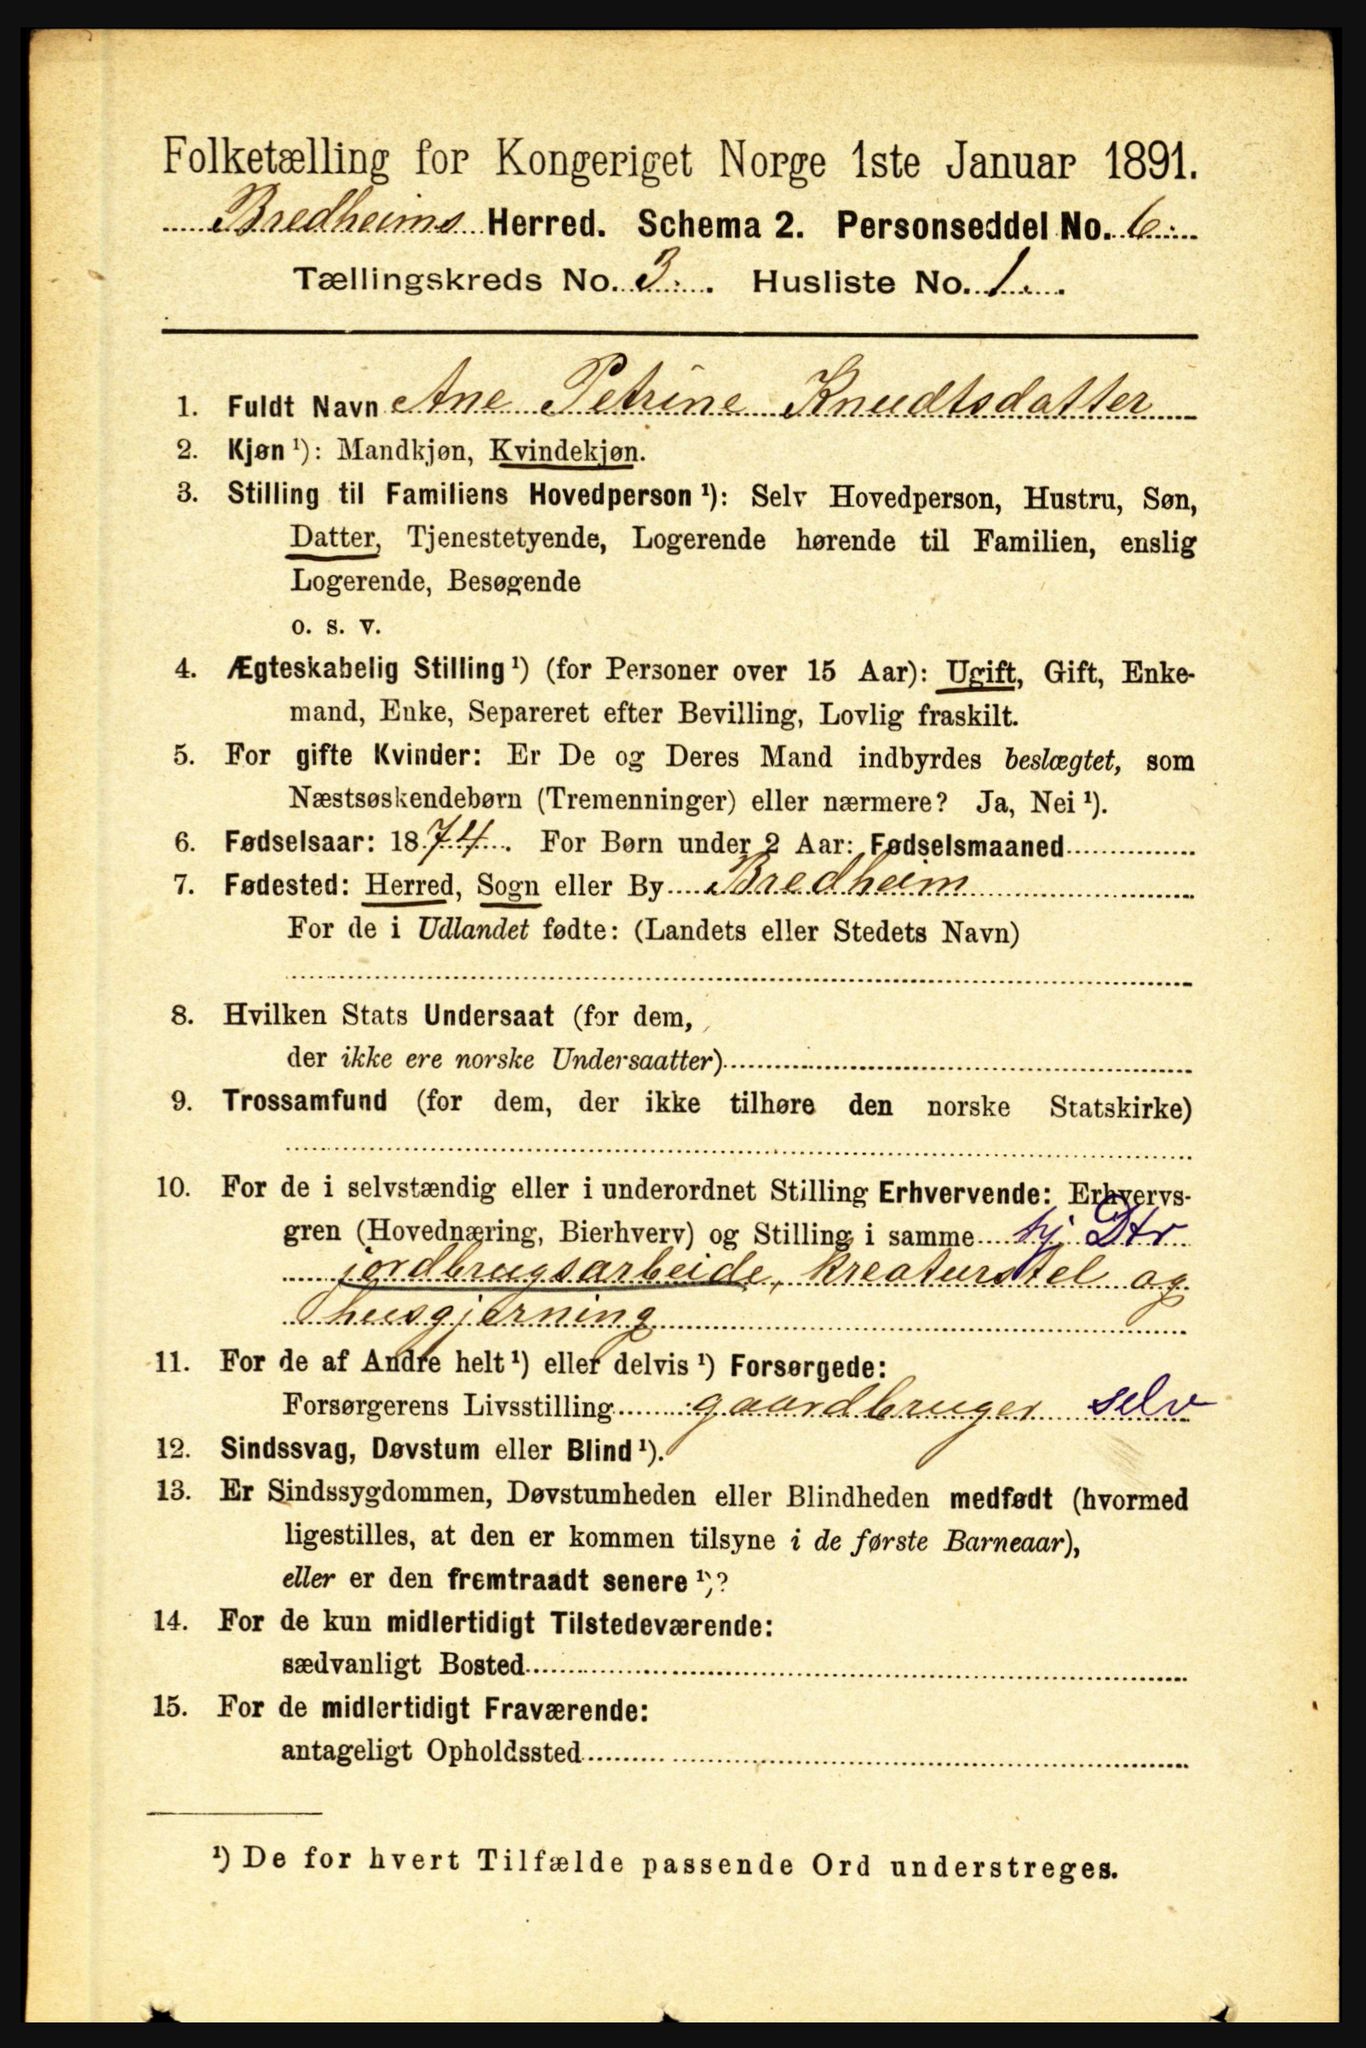 Folketælling for Kongeriget Norge 1ste Januar 1891.
Bredheims Herred. Schema 2. Personseddel No. 6.
Tællingskreds No. 3. Husliste No. 1.
1. Fuldt Navn Ane Petrine Knudtsdatter
2. Kjøn ¹): Mandkjøn, Kvindekjøn.
3. Stilling til Familiens Hovedperson ¹): Selv Hovedperson, Hustru, Søn,
Datter, Tjenestetyende, Logerende hørende til Familien, enslig
Logerende, Besøgende
o. s. v.
4. Ægteskabelig Stilling ¹) (for Personer over 15 Aar): Ugift, Gift, Enke-
mand, Enke, Separeret efter Bevilling, Lovlig fraskilt.
5. For gifte Kvinder: Er De og Deres Mand indbyrdes beslægtet, som
Næstsøskendebørn (Tremenninger) eller nærmere? Ja, Nei ¹).
6. Fødselsaar: 1874. For Børn under 2 Aar: Fødselsmaaned
7. Fødested: Herred, Sogn eller By Bredheim
For de i Udlandet fødte: (Landets eller Stedets Navn)
8. Hvilken Stats Undersaat (for dem,
der ikke ere norske Undersaatter)
9. Trossamfund (for dem, der ikke tilhøre den norske Statskirke)
10. For de i selvstændig eller i underordnet Stilling Erhvervende: Erhvervs-
gren (Hovednæring, Bierhverv) og Stilling i samme hj Dtr
jordbrugsarbeide, kreaturstel og
husgjerning
11. For de af Andre helt ¹) eller delvis ¹) Forsørgede:
Forsørgerens Livsstilling gaardbruger selv
12. Sindssvag, Døvstum eller Blind ¹).
13. Er Sindssygdommen, Døvstumheden eller Blindheden medfødt (hvormed
ligestilles, at den er kommen tilsyne i de første Barneaar),
eller er den fremtraadt senere ¹)?
14. For de kun midlertidigt Tilstedeværende:
sædvanligt Bosted
15. For de midlertidigt Fraværende:
antageligt Opholdssted
¹) De for hvert Tilfælde passende Ord understreges.